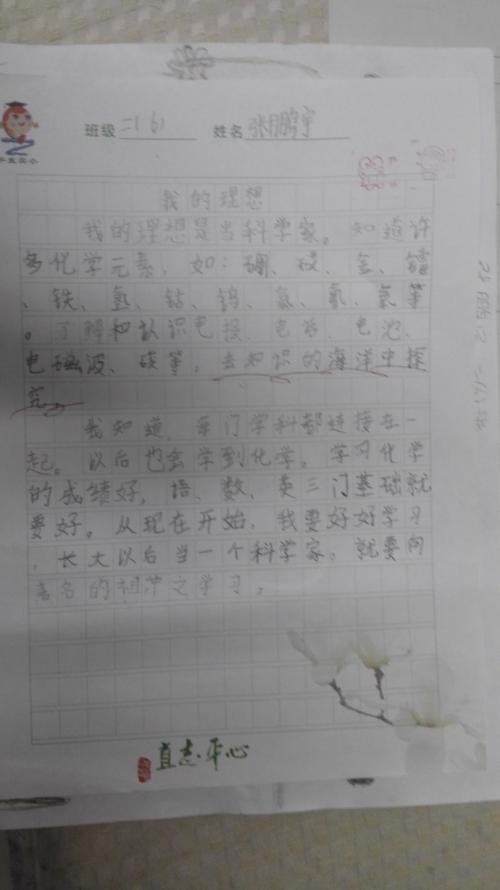 班级 二(6) 姓名 张鹏宇
我的理想
我的理想是当科学家。知道许
多化学元素,如:硼、砹、金、镭
、铁、氢、钴、钨、氦、氧、氯等
。了解和认识电报、电话、电池、
电磁波、碳等,去知识的海洋中探
究。
我知道,每门学科都连接在一
起。以后也会学到化学。学习化学
的成绩好,语、数、英三门基础就
要好。从现在开始,我要好好学习
,长大以后当一个科学家,就要向
著名的祖冲之学习。
直志平心